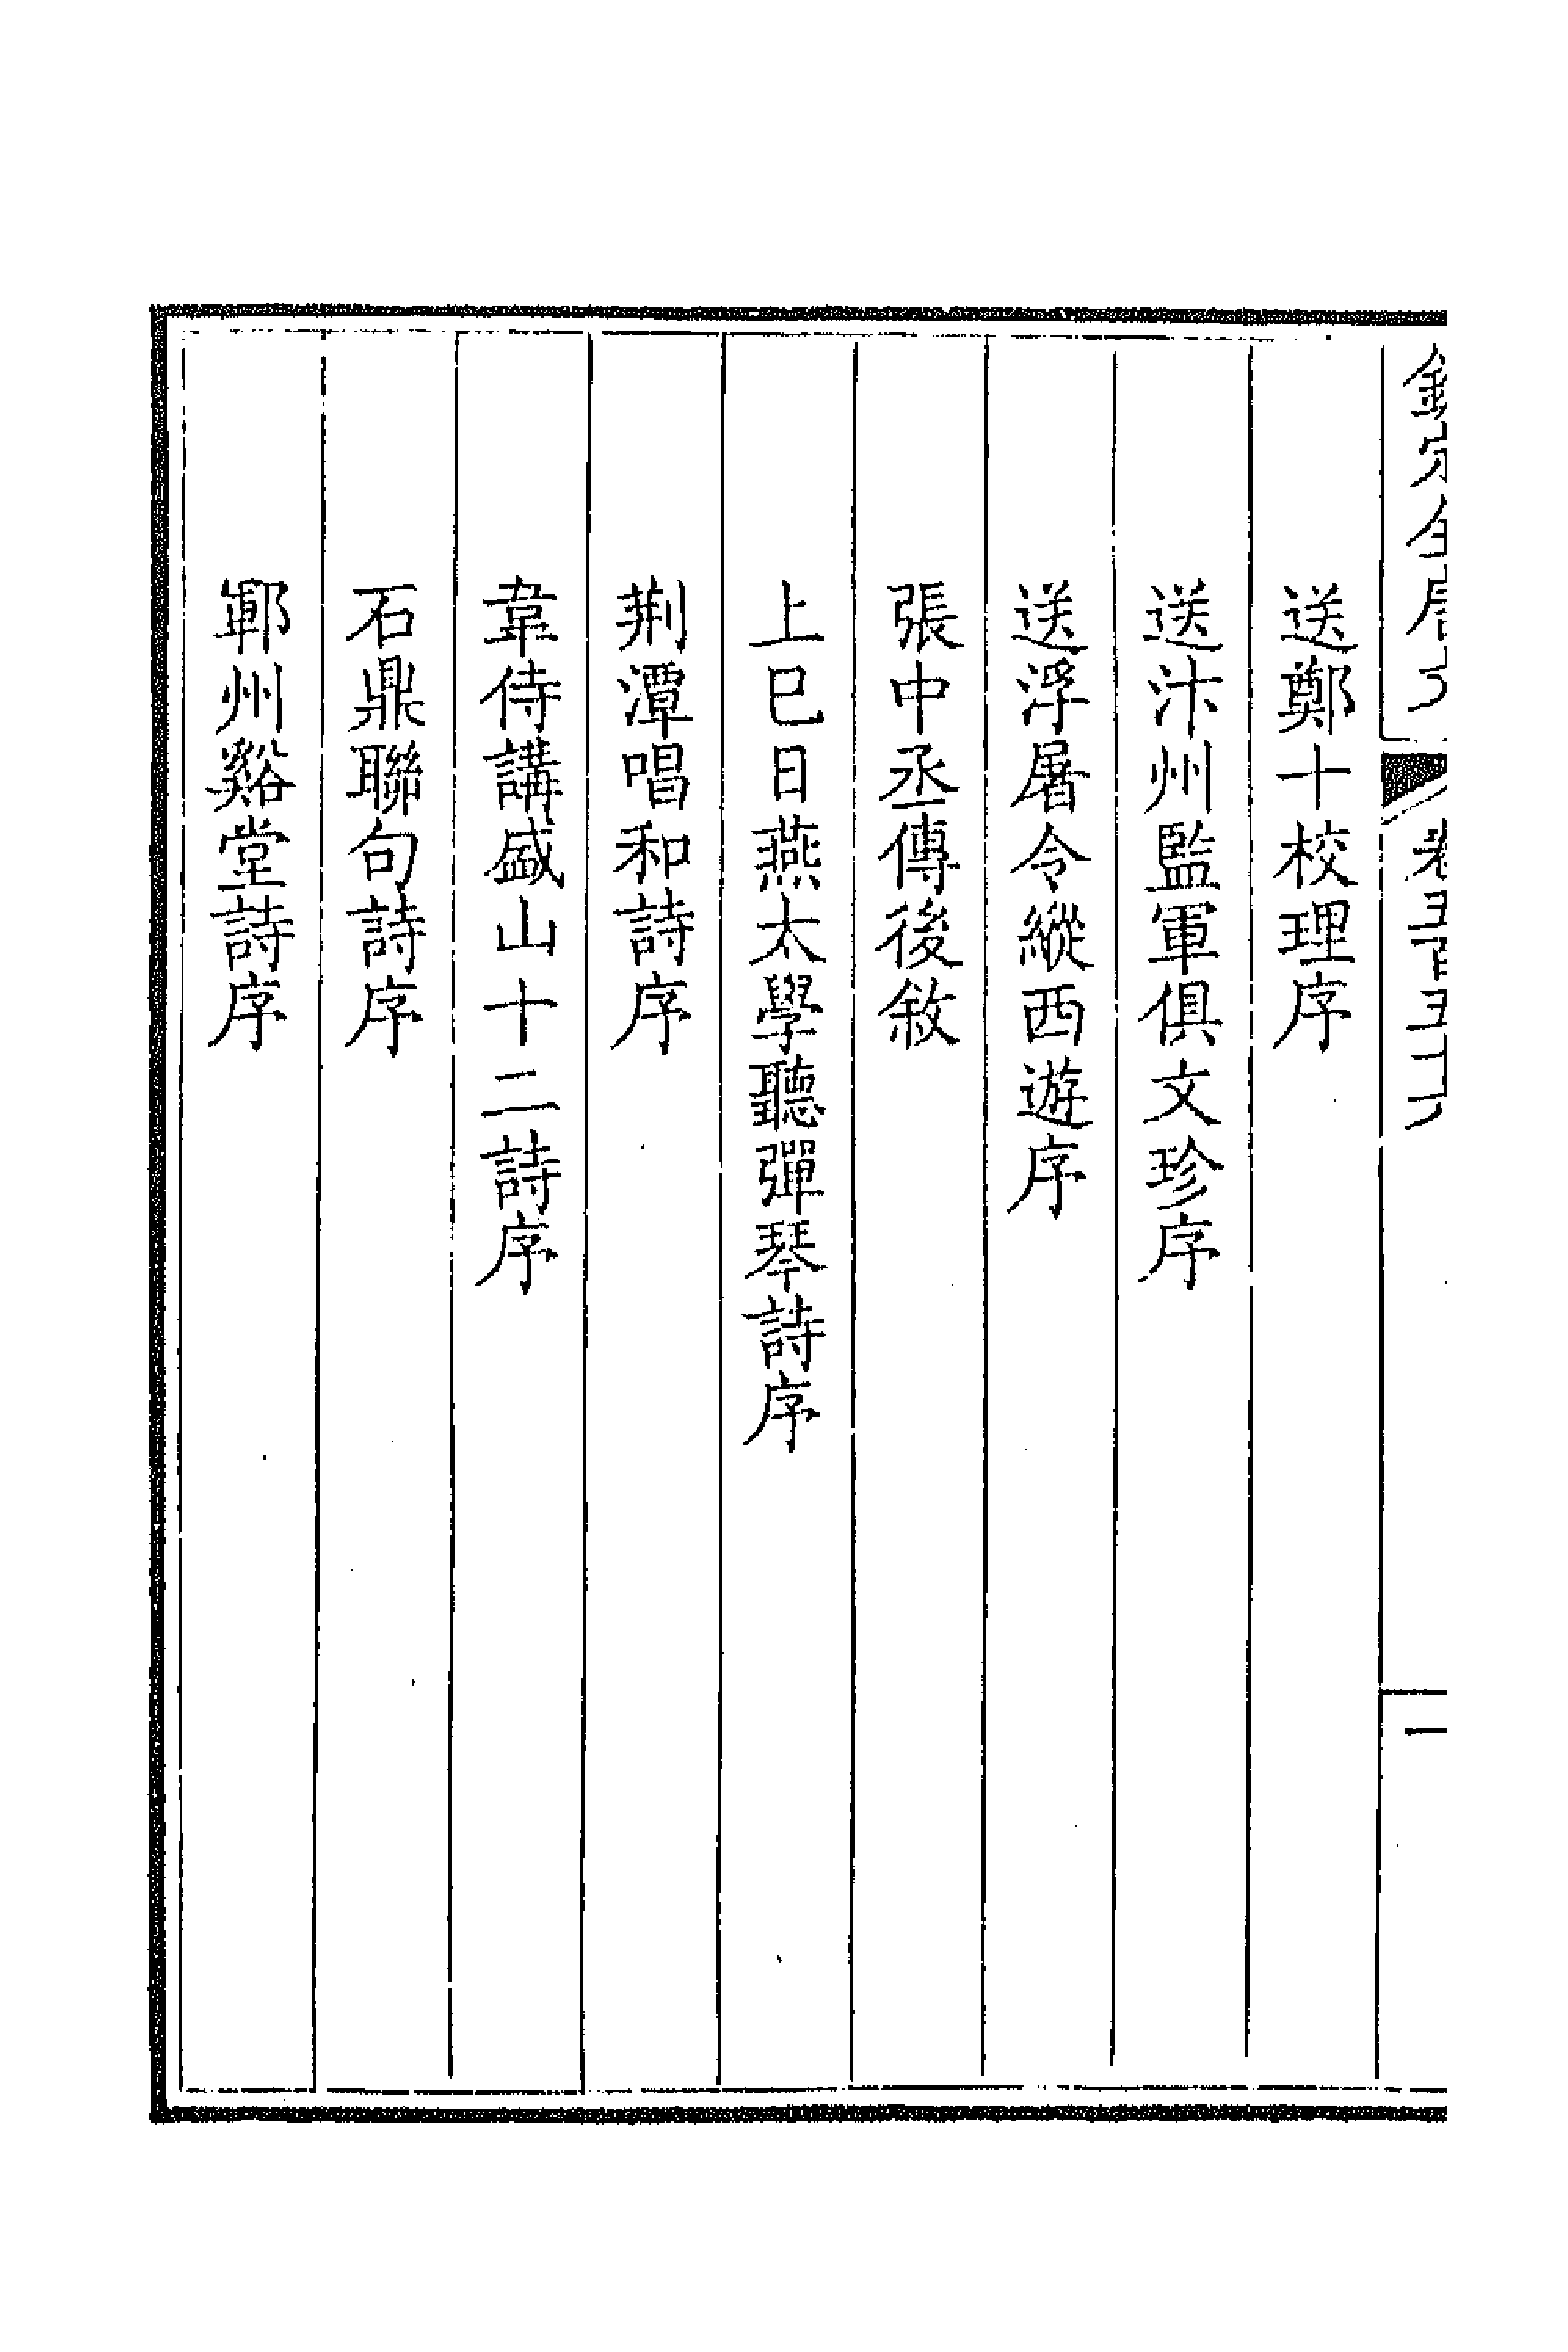 送鄭十校理序
送汴州監軍俱文珍序
送浮屠令縱西遊序
張中丞傳後敘
上巳日燕太學聽彈琴詩序
荆潭唱和詩序
韋侍講盛山十二詩序
石鼎聯句詩序
鄆州谿堂詩序